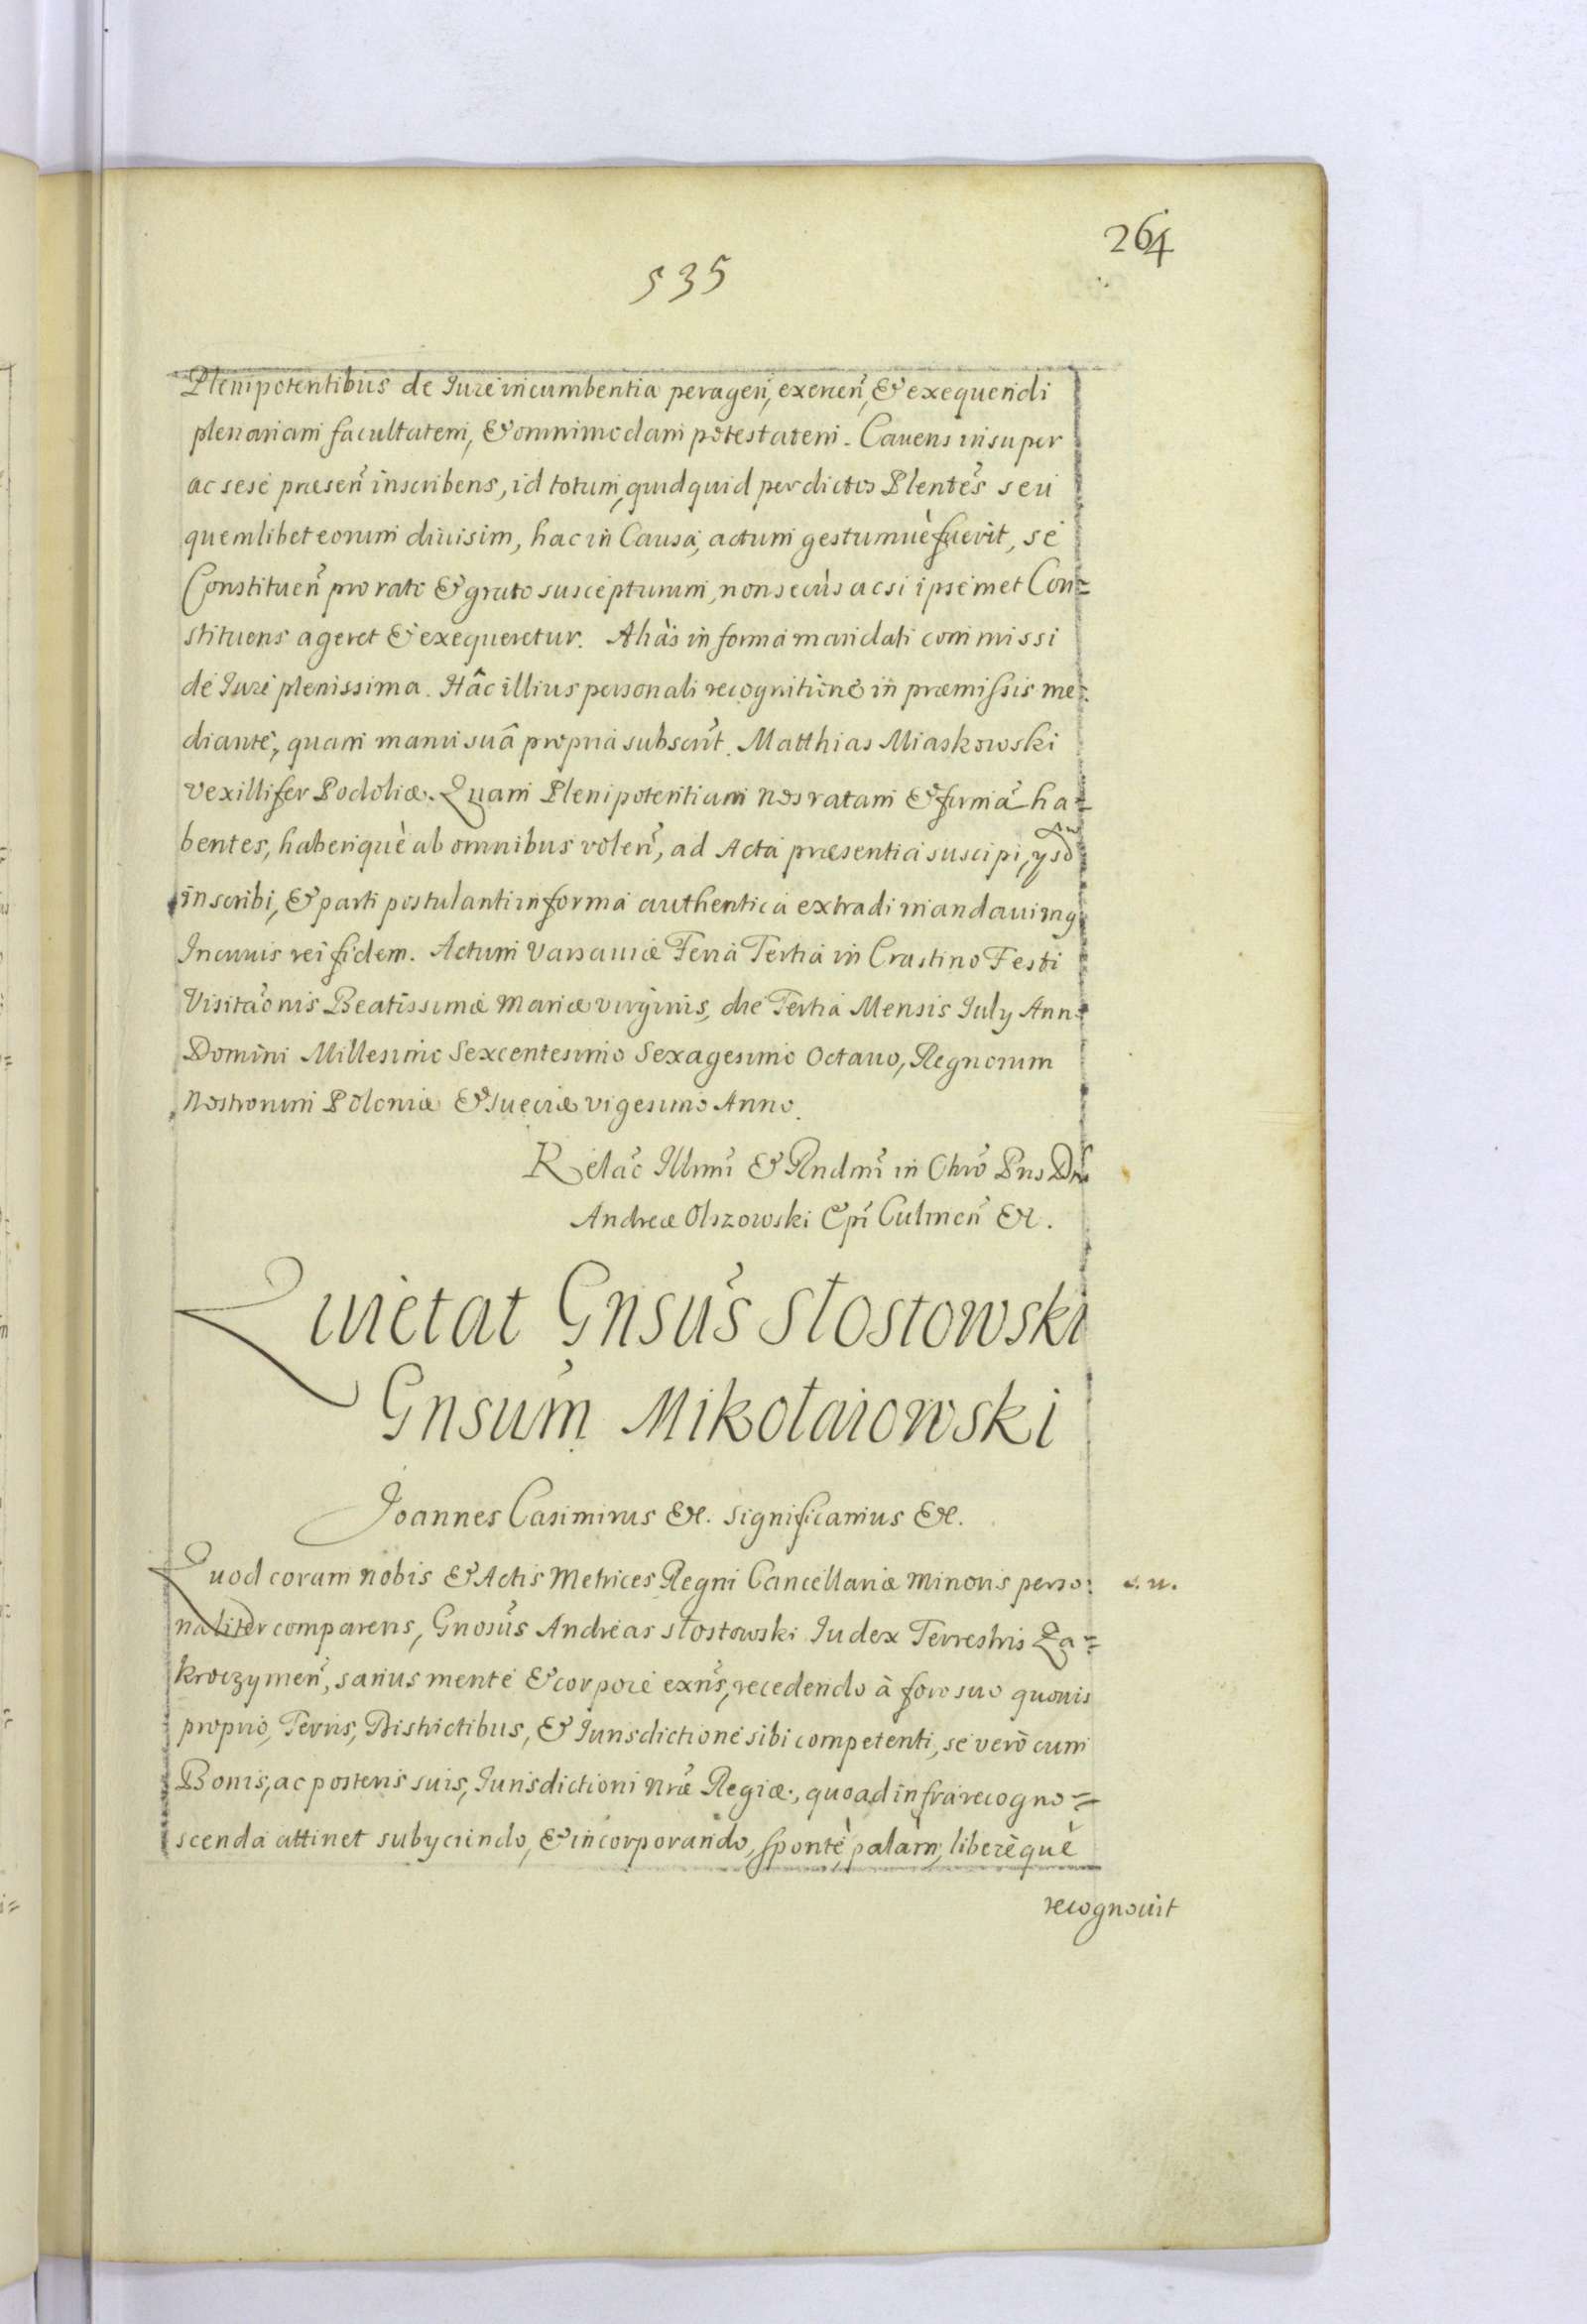 264
535
Plenipotentibus de Iure incumbentia peragen, exercen, & exequendi
plenariam facultatem, & omnimodam potestatem. Cavens insuper
ac sese præsen inscribens, id totum, quidquid per dictos Plentes seu
quemlibet eorum diuisim, hac in Causa, actum gestumuè fuerit, se
Constituen pro rato & grato suscepturum, non secùs ac si ipsemet Con=
stituens ageret & exequeretur. Aliàs in forma mandati commissi
de Iure plenissima. Hâc illius personali recognitione in præmissis me=
diante, quam manu suâ propria subscrit. Matthias Miaskowski
Vexillifer Podoliæ. Quam Plenipotentiam nos ratam & firmã ha=
bentes, haberiquè ab omnibus volen, ad Acta præsentia suscipi, ysd
inscribi, & parti postulanti in forma authentica extradi mandauimq
In cuius rei fidem. Actum Varsauiæ Feria Tertia in Crastino Festi
Visitaonis Beatissimæ Mariæ virginis, die Tertia Mensis July Ann
Domini Millesimo Sexcentesimo Sexagesimo Octauo, Regnorum
Nostrorum Poloniæ & Sueciæ vigesimo Anno.
Relao Illrmi & Rndmi in Chro Pris Dni
Andreæ Olszowski Epi Culmen &c.
Quietat Gnsus Słostowski
Gnsum Mikołaiowski
Joannes Casimirus &c. significamus &c.
Quod coram nobis & Actis Metrices Regni Cancellariæ Minoris perso:
naliter comparens, Gnosus Andreas Słostowski Iudex Terrestris Za=
kroczymen, sanus mente & corpore exns, recedendo à foro suo quouis
proprio, Terris, Districtibus, & Iurisdictione sibi competenti, se verò cum
Bonis, ac posteris suis, Iurisdictioni nræ Regiæ, quoad infra recogno=
scenda attinet subyciendo, & incorporando, sponte, palàm, liberèquè
recognouit